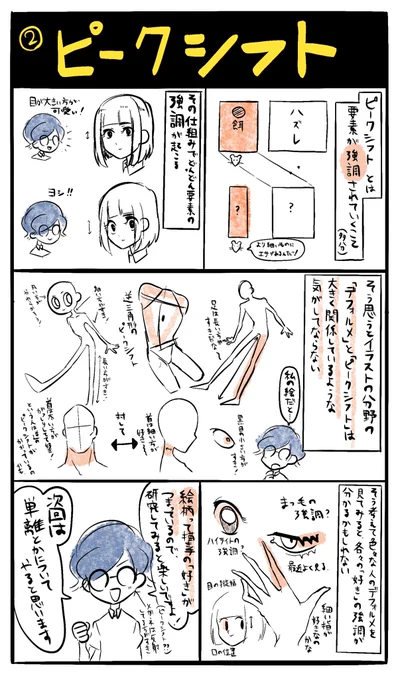 ②
ピークシフト
ピークシフトとは
要素が強調
されていくこと
(多分)
ハズレ
餌
?
?
より細いものに
エサがあるんだ!
その仕組みでどんどん要素の
強調が起こる
目が大きい方が
可愛い!
ヨシ!!
そう思うとイラストの分野の
「デフォルメ」と「ピークシフト」は
大きく関係しているような
気がしてならない
私の絵だと
足は長い方が
逆三角形の
ピークシフト
首は細い方が
好き
対して
そう考えて色々な人のデフォルメを
見てみると各々の「好き」の強調が
分かるかもしれない
まつ毛の
強調?
最近よく見る
ハイライトの
強調?
目の縦幅
口の位置
細い指が
好きなの
かな
絵柄って指手の「好き」が
つまっているので、
研究してみると楽しいですよ
次回は
単離とかについて
やると思います